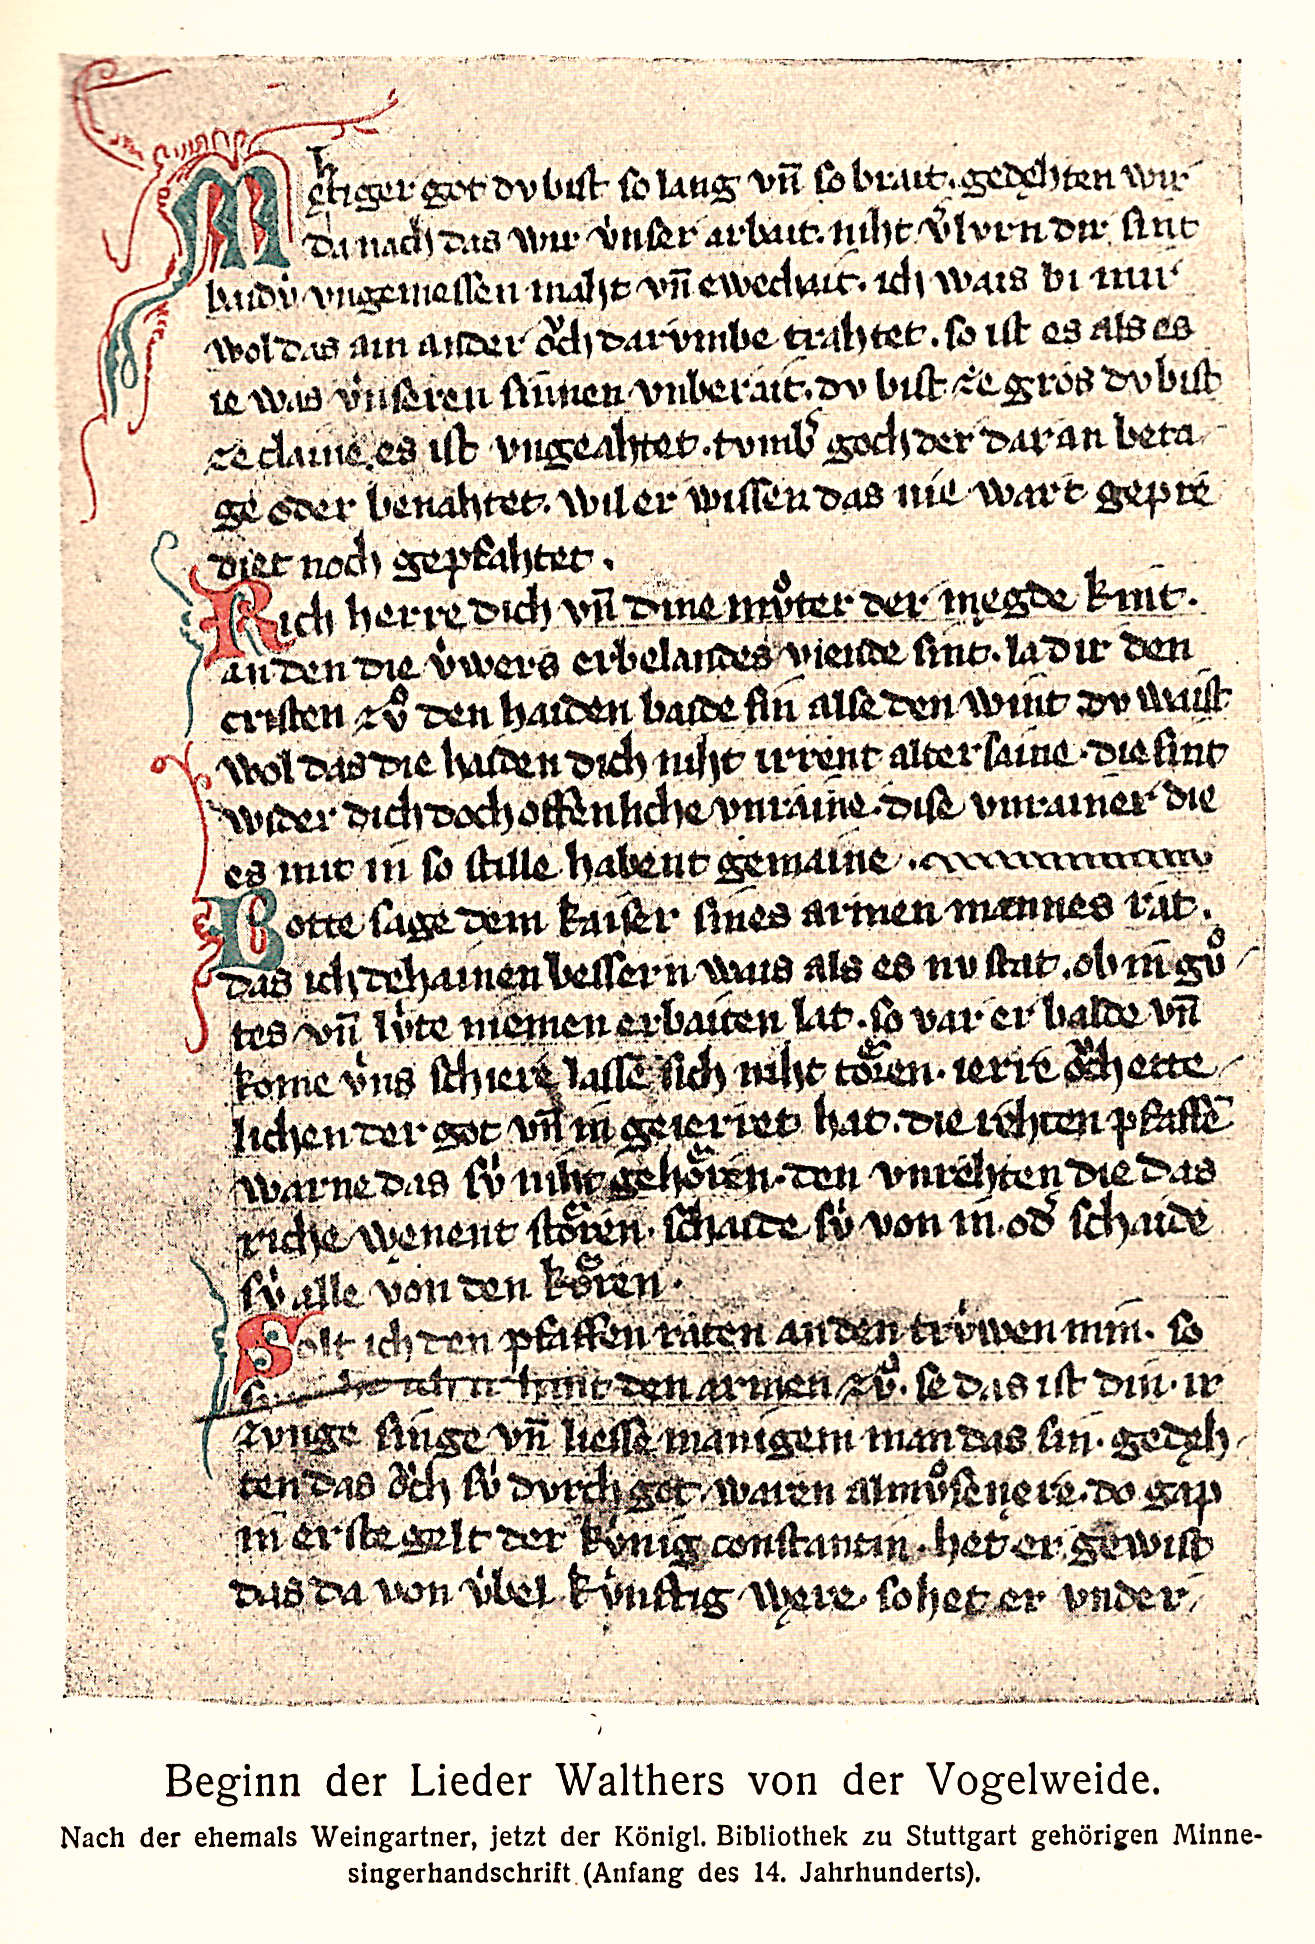 Mehtiger got dv bist so lang vn̄ so brait. gedęhten wir
da nach das wir v̇nser arbait. niht v̓lvrn dir sint
baidv̇ vngemessen maht vn̄ ewechait. ich wais bi mir
wol das ain ander ǒch darvmbe trahtet. so ist es als es
ie was v̇nseren sinnen vnberait. dv bist ze gros dv bist
ze claine. es ist vngeahtet. tvmb̓ goch der dar an beta
ge oder benahtet. wil er wissen das nie wart gepre
diet noch gepfahtet.
Rich herre dich vn̄ dine mv̊ter der megde kint.
an den die v̇wers erbelandes viende sint. la dir den
cristen zv̊ den haiden baide sin alse den wint dv waist
wol das die haiden dich niht irrent alter saine. die sint
wider dich doch offenliche vnraine. dise vnrainer die
es mit in so stille habent gemaine.
Botte sage dem kaiser sines armen mannes rat.
das ich dehainen bessern wais als es nv stat. ob in gv̊
tes vn̄ lv̇te niemen erbaiten lat. so var er balde vn̄
kome v̇ns schiere lasse sich niht tőren. ierre ǒch ette
lichen der got vn̄ in geierret hat. die rehten pfaffē
warne das sv̇ niht gehőren. den vnrehten die das
riche wenent stőren. schaide sv̇ von in. od̓ schaide
sv̇ alle von den kőren.
Solt ich den pfaffen raten an den trv̇wen min. so
hant den armen zv̊. se das ist din. ir
zvnge singe vn̄ liesse manigem man das sin. gedęh
ten das ǒch sv̇ dvrch got waren almv̊senere. do gap
in erste gelt der kv̇nig constantin. het er gewist
das da von v̇bel kv̇nftig węre. so het er vnder
Beginn der Lieder Walthers von der Vogelweide.
Nach der ehemals Weingartner, jetzt der Königl. Bibliothek zu Stuttgart gehörigen Minne-
singerhandschrift (Anfang des 14. Jahrhunderts).